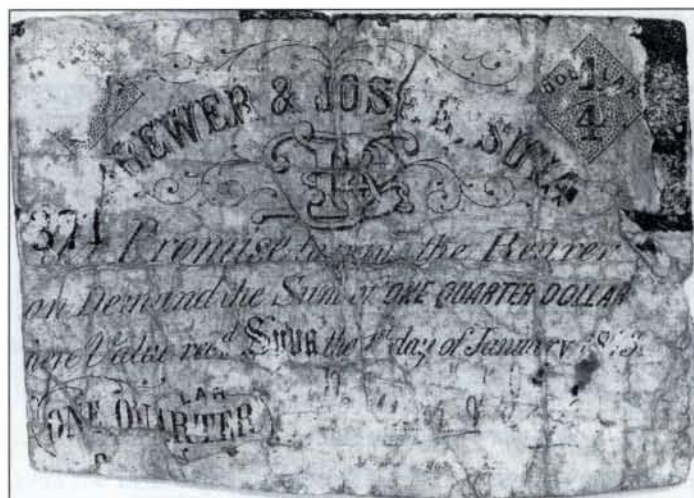 DOLLAR 1/4
BREWER & JOSKE, SUVA
371
Promise to pay the Bearer
on Demand the Sum of ONE QUARTER DOLLAR
here Value recd Suva the 1st day of January
LAR
ONE QUARTER